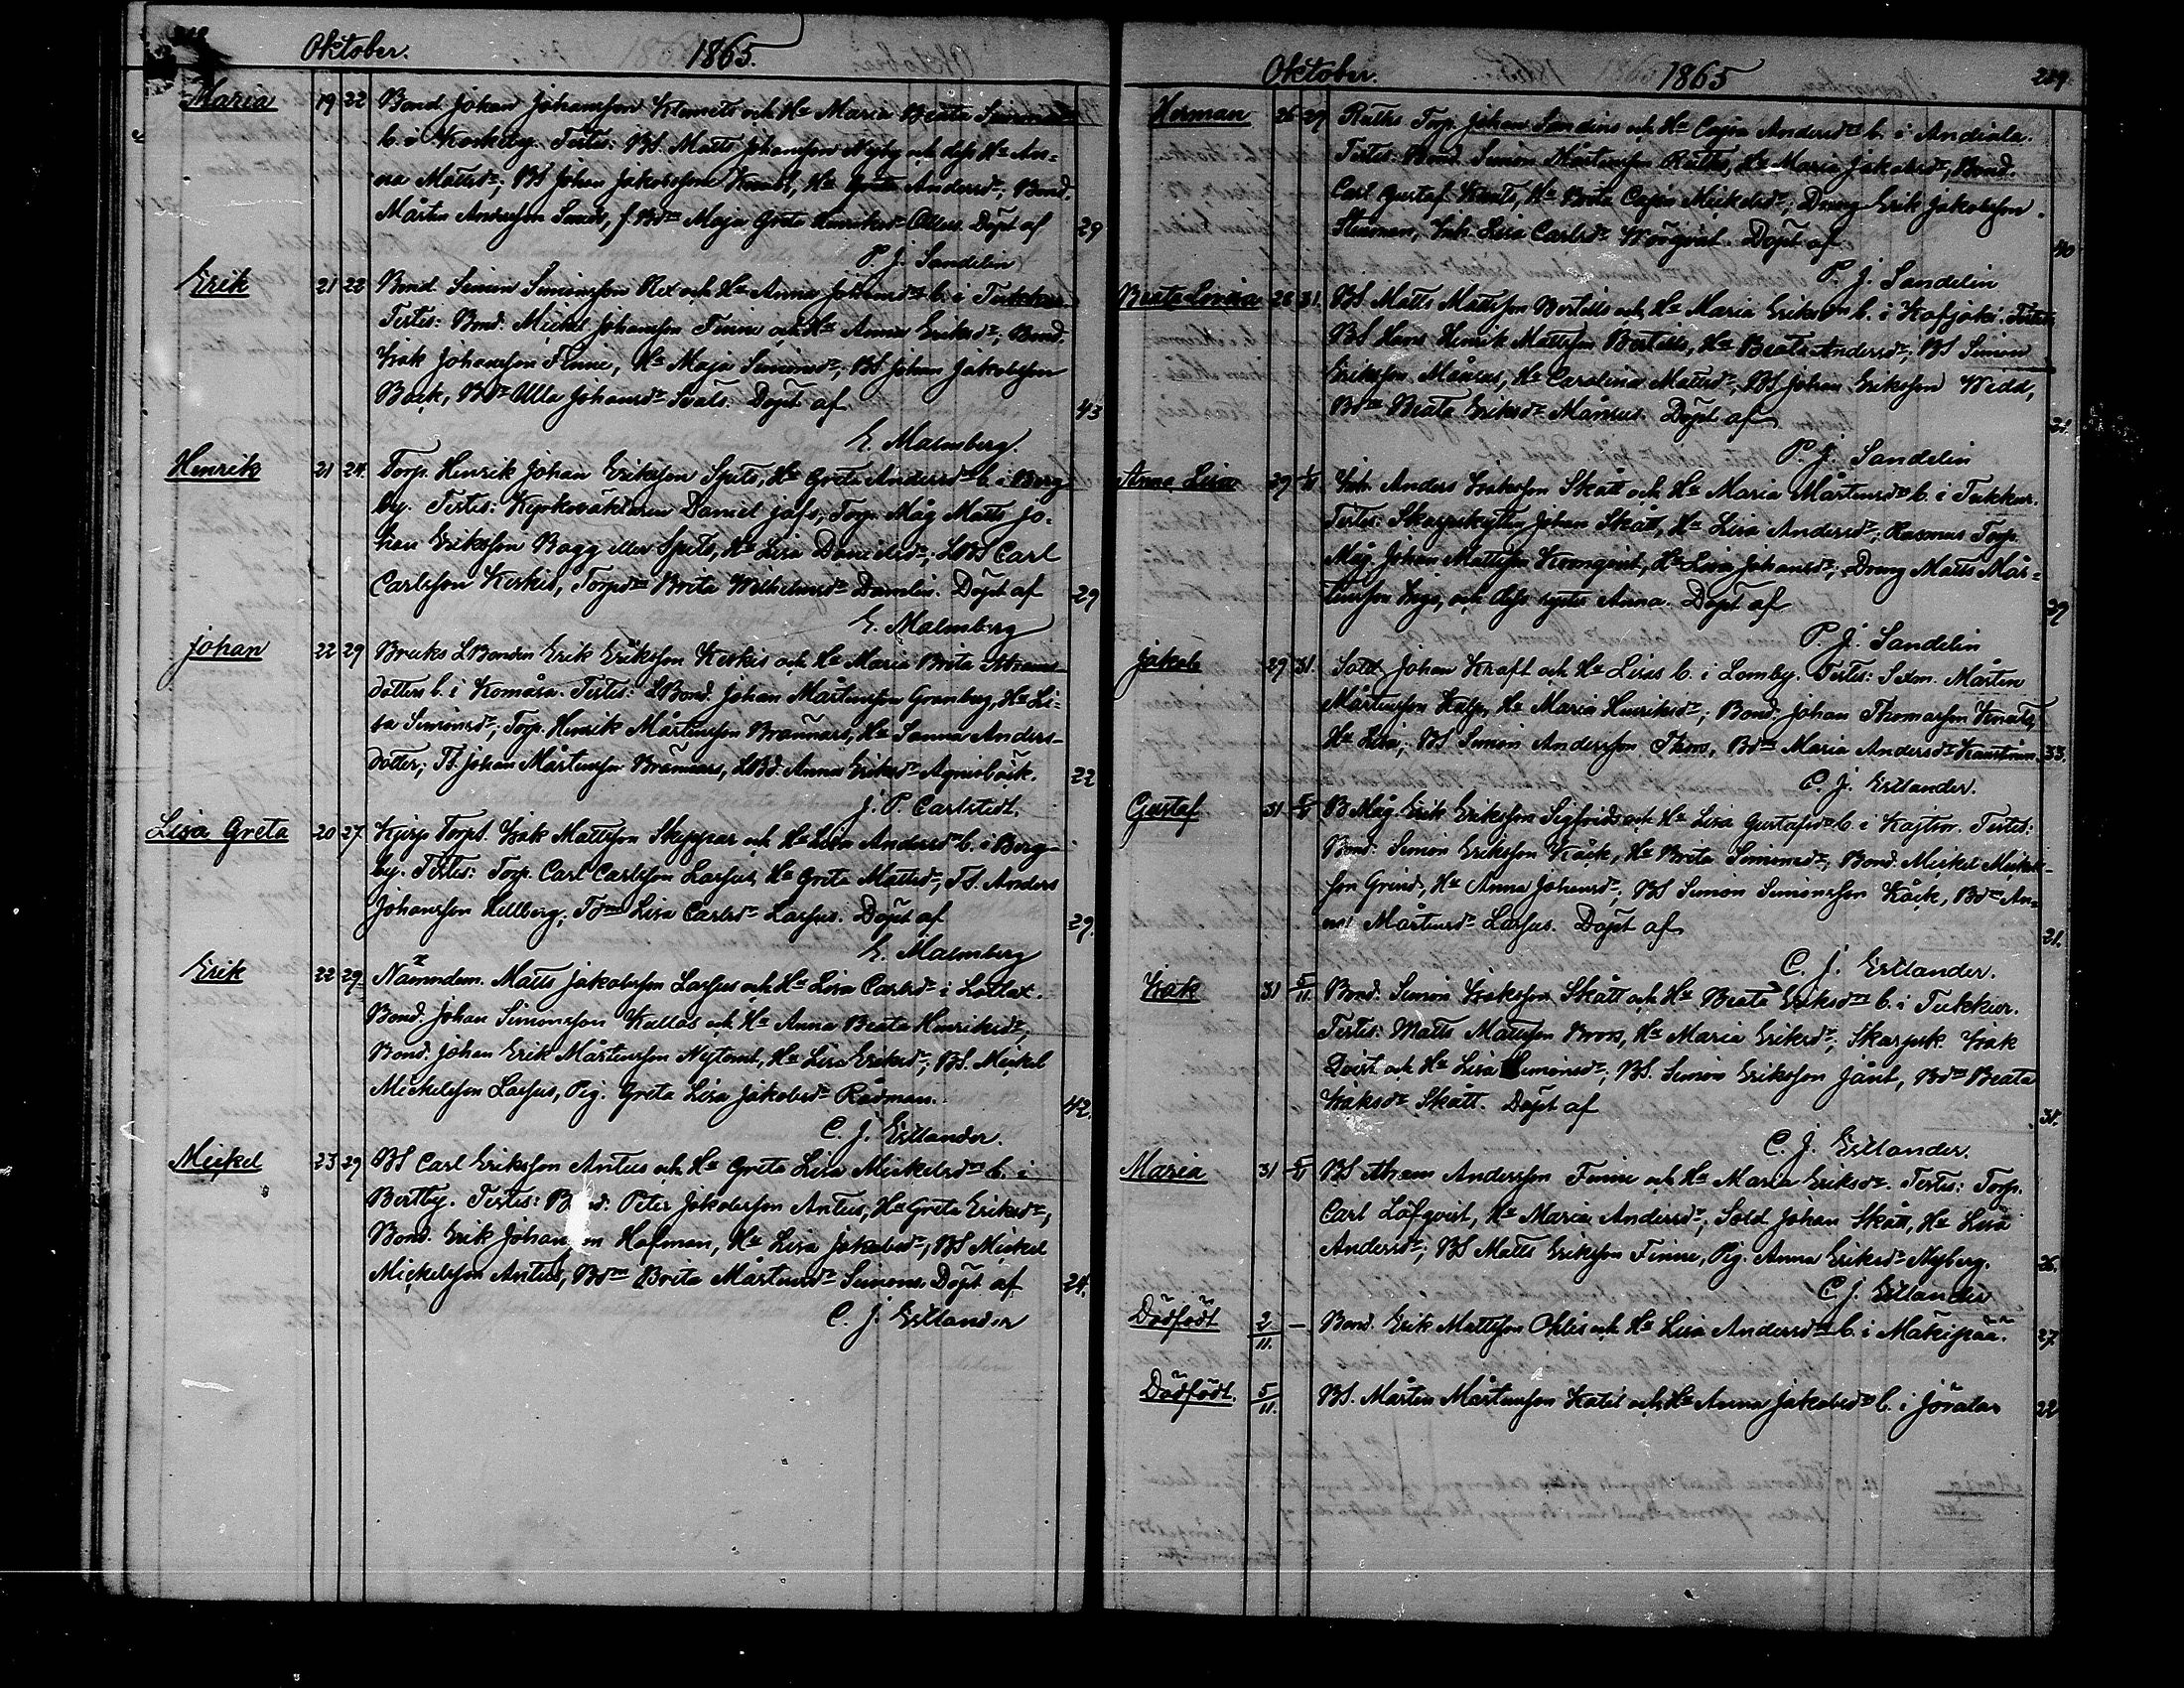 Oktober. 1865.
Maria 19 22 Bond Johan Johansson Klemets och Hu Maria Beata Simonsdr
b. i Korkeby. Testes: BS. Matts Johansson Nyby och dess Hu An-
na Mattsdr, BS Johan Jakobsson Knubb, Hu Greta Andersdr, Bond.
Mårten Andersson Sunds, f. Bdn Maja Greta Henriksdr Döpt af 29
P. J. Sandelin
Erik 21 22 Bond Simon Simonsson Rex och Hu Anna Johansdr b. i Tukkur
Testes: Bond. Mickel Johansson Finne och Hu Anna Eriksdr, Bond.
Isak Johansson Finne, Hu Maja Simonsdr, BS Johan Jakobsson
Back, Bdr Ulla Johansdr Svals. Döpt af 43
E. Malmberg.
Henrik 21 24. Torp. Henrik Johan Eriksson Spets, Hu Greta Andersdr b. i Berg
by. Testes: Kyrkovaktaren Daniel Jåfs, Torp. Måg Matts Jo-
han Eriksson Bagg eller Spets, Hu Lisa Danielsdr, LBS Carl
Carlsson Keskis, Torpdn Brita Wilhelmsdr Damlin. Döpt af 29
E. Malmberg
Johan 22 29 Bruks LBonden Erik Eriksson Keskis och Hu Maria Brita Abrams-
dotter b. i Komåsa. Testes: LBond. Johan Mårtensson Granberg, Hu Li-
sa Simonsdr, Torp. Henrik Mårtensson Brännars, Hu Sanna Anders-
dotter; TS. Johan Mårtensson Brännars, LBd. Anna Eriksdr Agnisbäck. 22
J. P. Carlstedt.
Lisa Greta 20 27. Kyrp Torp. Isak Mattsson Skeppar och Hu Lisa Andersdr b. i Berg-
by. Testes: Torp. Carl Carlsson Lassus, Hu Greta Mattsdr, TS. Anders
Johansson Hellberg, Tdn Lisa Carlsdr Lassus. Döpt af 29.
E. Malmberg
Erik 22 29 Nämndem. Matts Jakobsson Lassus och Hu Lisa Carlsdr i Lottax.
Bond. Johan Simonsson Kallas och Hu Anna Beata Henriksdr,
Bond. Johan Erik Mårtensson Nytomt, Hu Lisa Eriksdr; BS. Mickel
Mickelsson Lassus, Pig. Greta Lisa Jakobsdr Rådman. 42.
C. J. Estlander.
Mickel 23 29 BS Carl Eriksson Antus och Hu Greta Lisa Mickelsdr b. i
Bertby. Testes: Bond. Peter Jakobsson Antus, Hu Greta Eriksdr,
Bond. Erik Johansson Hofman, Hu Lisa Jakobsdr, BS Mickel
Mickelsson Antus, Bdn Brita Mårtensdr Simons. Döpt af 24.
C. J. Estlander
Oktober. 1865 219.
Herman 26 29 Ruths Torp. Johan Sandins och Hu Cajsa Andersdr b. i Andiala.
Testes: Bond. Simon Mårtensson Ruths, Hu Maria Jakobsdr, Bond.
Carl Gustaf Knuts, Hu Brita Cajsa Mickelsdr, Dräng Erik Jakobsson
Stenman, Inh. Lisa Carlsdr Döpt af 40
P. J. Sandelin
Beata Lovisa 28 31. BS. Matts Mattsson Bertills och Hu Maria Eriksdr b. i Kofjoki. Testes
BS Hans Henrik Mattsson Bertills, Hu Beata Andersdr; BS Simon
Eriksson Månsus, Hu Carolina Mattsdr, BS Johan Eriksson Widd,
Bdn Beata Eriksdr Månsus. Döpt af
P. J. Sandelin
Anna Lisa 29 Inh. Anders Isaksson Skått och Hu Maria Mårtensdr b. i Tukkur.
Testes: Skarpskytten Johan Skått, Hu Lisa Andersdr; Rasmus Torp.
Måg. Johan Mattsson Kronqvist, Hu Lisa Johansdr; Dräng Matts Mår-
tensson och dess syster Anna. Döpt af 39
P. J. Sandelin
Jakob 29 31. Sold. Johan Kraft och Hu Lisas b. i Lomby. Testes: Sexm. Mårten
Mårtensson Hu Maria Henriksdr; Bond. Johan Thomasson Knuts,
Hu Lisa; BS Simon Andersson Thors, Bdn Maria Andersdr 33.
C. J. Estlander.
Gustaf 31 B Måg. Erik Eriksson Sigfrids och Hu Lisa Gustafsdr b. i Kaitor. Testes:
Bond. Simon Eriksson Käck, Hu Brita Simonsdr, Bond. Mickel Mickels-
son Grind, Hu Anna Johansdr, BS Simon Simonsson Käck, Bdn An-
na Mårtensdr Lassus. Döpt af 21.
C. J. Estlander.
Isak 31 5/11 Bond. Simon Isaksson Skått och Hu Beata Eriksdr b. i Tukkur.
Testes: Matts Mattsson Broos, Hu Maria Eriksdr; Skarpsk. Isak
Qvist och Hu Lisa Simonsdr, BS. Simon Eriksson Jånt, Bdn Beata
Isaksdr Skått. Döpt af 31.
C. J. Estlander.
Maria 31 BS Abram Andersson Finne och Hu Maria Eriksdr. Testes: Torp.
Carl Löfqvist, Hu Maria Andersdr, Sold Johan Skått, Hu Lisa
Andersdr; BS Matts Eriksson Finne, Pig. Anna Eriksdr Nyberg. 26.
C. J. Estlander
Dödfödt 2/11. — Bond. Erik Mattsson Ohlis och Hu Lisa Andersdr b. i Mäkipää. 27
Dödfödt. 5/11. BS. Mårten Mårtensson Katil och Hu Anna Jakobsdr b. i Jöralas 22